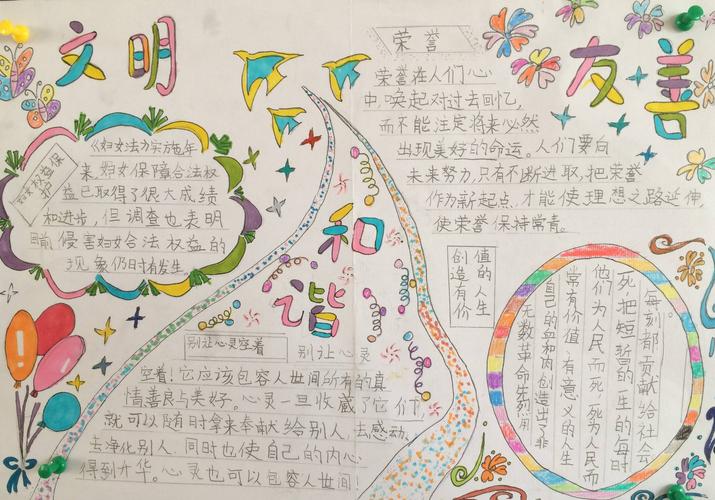 文明
妇女权益保护
《妇女法》实施年
来,妇女保障合法权
益已取得了很大成绩
和进步,但调查也表明
目前侵害妇女合法权益的
现象仍时有发生。
和谐
荣誉
荣誉在人们心
中,唤起对过去回忆,
而不能注定将来必然
出现美好的命运。人们要向
未来努力,只有不断进取,把荣誉
作为新起点,才能使理想之路延伸,
使荣誉保持常青。
友善
创造有价
值的人生
无数革命先烈用
自己的血和肉,创造出了非
常有价值,有意义的人生
他们为人民而死,死为人民而
死,把短暂的一生的每时
每刻都贡献给社会
别让心灵空着
别让心灵
空着!它应该包容人世间所有的真
情善良与美好。心灵一旦收藏了它们,
就可以随时拿来奉献给别人,去感动、
去净化别人,同时也使自己的内心
得到升华。心灵也可以包容人世间!